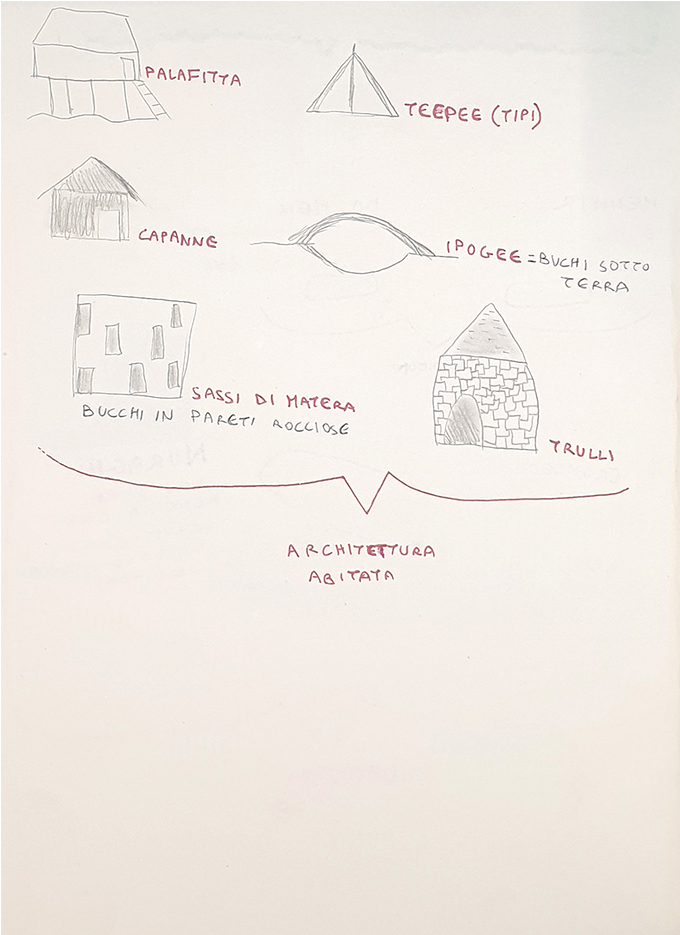 PALAFITTA
TEEPEE (TIPI)
CAPANNE
IPOGEE = BUCHI SOTTO
TERRA
SASSI DI MATERA
BUCCHI IN PARETI ROCCIOSE
TRULLI
ARCHITETTURA
ABITATA